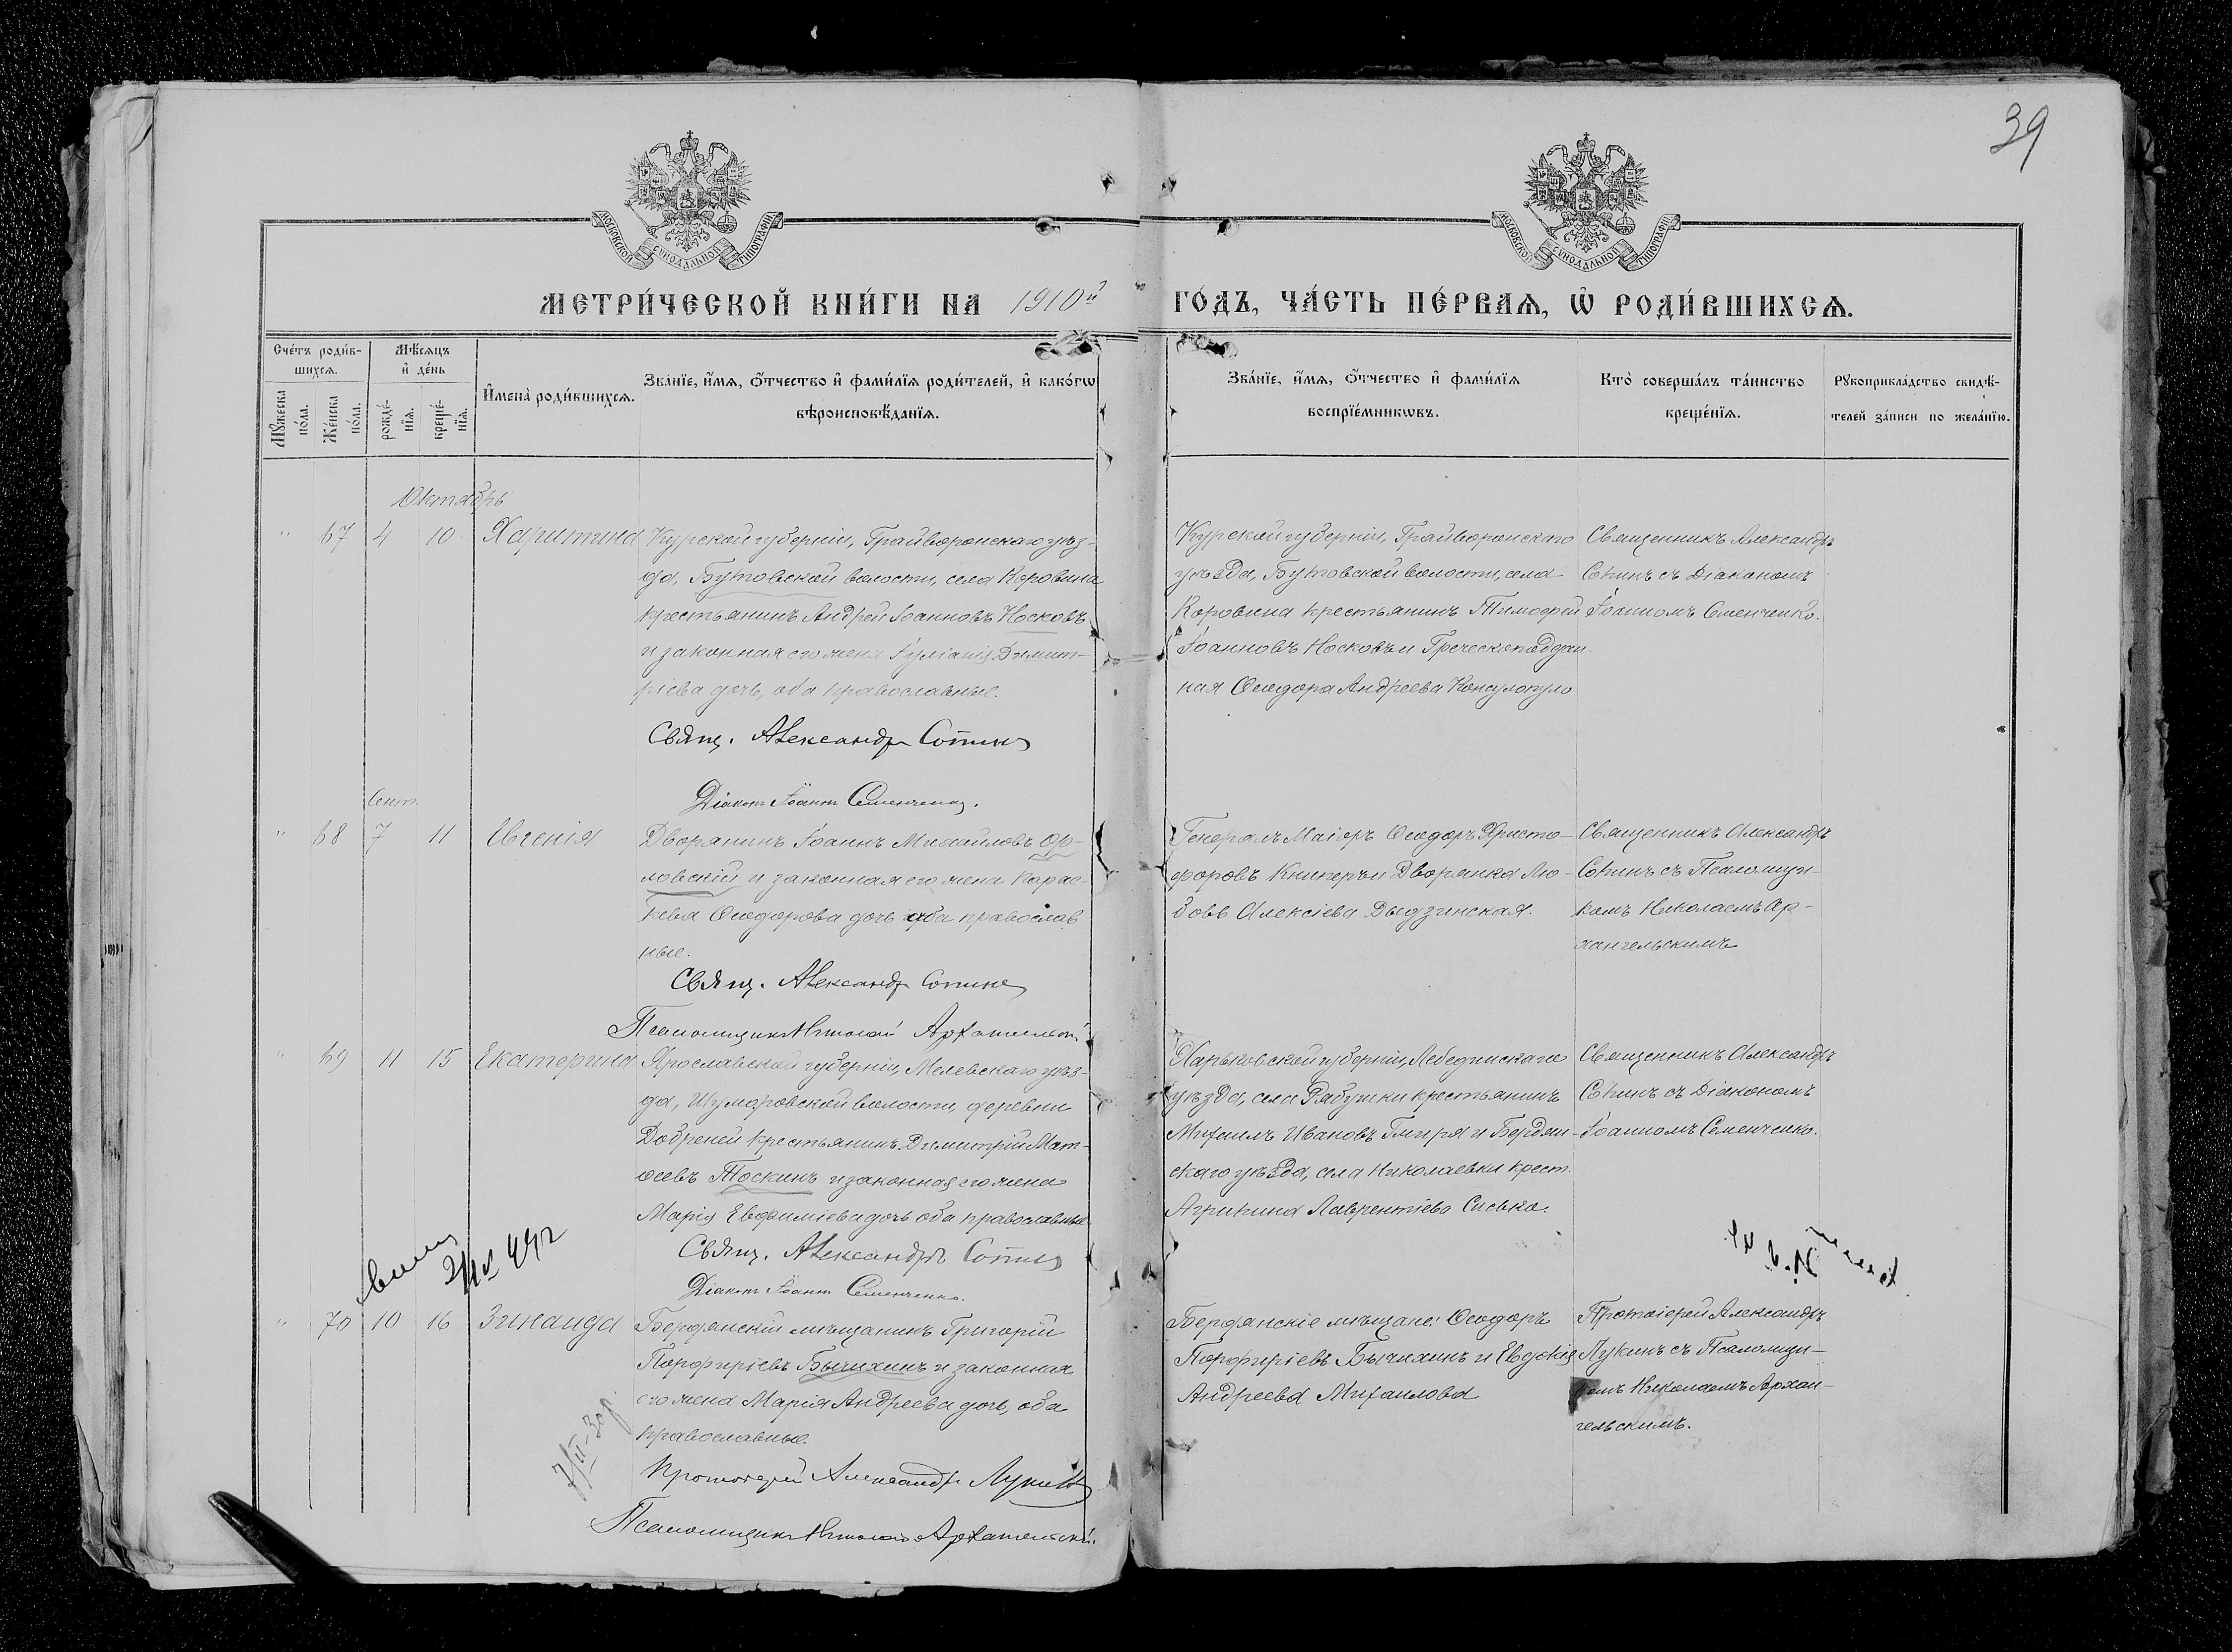 39
МОСКОВСКОЙ СѴНОДАЛЬНОЙ ТИПОГРАФІИ
МОСКОВСКОЙ СѴНОДАЛЬНОЙ ТИПОГРАФІИ
МЕТРИ́ЧЕСКОЙ КНИ́ГИ НА 1910й ГО́ДЪ, ЧА́СТЬ ПЕ́РВАѦ, Ѡ҆ РОДИ́ВШИХСѦ.
Сче́тъ роди́в-
шихсѧ.
Мꙋ́жеска по́ла.
Же́нска по́ла.
Мѣ́сѧцъ
и҆ де́нь
рожде́-
нїѧ.
креще́-
нїѧ.
И҆мена̀ роди́вшихсѧ.
Зва́нїе, и҆́мѧ, ѻ҆́тчество и҆ фами́лїѧ роди́телей, и҆ како́гѡ
вѣроисповѣ́данїѧ.
Зва́нїе, и҆́мѧ, ѻ҆́тчество и҆ фами́лїѧ
воспрїе́мникѡвъ.
Кто̀ соверша́лъ та́инство
креще́нїѧ.
Рꙋкоприкла́дство свидѣ́-
телей за́писи по жела́нїю.
Октябрь
" 67 4 10 Харитина
Курской губерніи, Грайворонскаго уѣз-
да, Бутовской волости, села Коровина
крестьянинъ Андрей Іоанновъ Носковъ
и законная его жена Іуліанія Димит-
ріева дочь, оба православные.
Свящ. Александръ Сопинъ
Діаконъ Іоаннъ Семенченко.
Курской губерніи, Грайворонскаго
уѣзда, Бутовской волости, села
Коровина крестьянинъ Тимофей
Іоанновъ Носковъ и Греческоподдан-
ная Ѳеодора Андреева Консулопуло
Священникъ Александръ
Сопинъ съ Діакономъ
Іоанномъ Семенченко.
Сент.
" 68 7 11 Евгенія
Дворянинъ Іоаннъ Михаиловъ Ор-
ловскій и законная его жена Парас-
кева Ѳеодорова дочь оба православ
ные.
Свящ. Александръ Сопинъ
Псаломщикъ Николай Архангельскій
Генералъ Маіоръ Ѳеодоръ Христо-
форовъ Книперъ и Дворянка Лю-
бовь Алексіева Дыдзинская.
Священникъ Александръ
Сопинъ съ Псаломщи-
комъ Николаемъ Ар-
хангельскимъ
" 69 11 15 Екатерина
Ярославской губерніи, Мелевскаго уѣз-
да, Шумаровской волости, деревни
Добреней крестьянинъ Димитрій Мат-
ѳеевъ Тоскинъ и законная его жена
Марія Евфиміева дочь оба православные
Свящ. Александръ Сопинъ
Діаконъ Іоаннъ Семенченко.
Харьковской губерніи, Лебединскаго
уѣзда, села Рябушки крестьянинъ
Михаилъ Ивановъ Гмиря и Бердян-
скаго уѣзда, села Николаевки крест.
Агрипина Лаврентіева Сиська.
Священникъ Александръ
Сопинъ съ Діакономъ
Іоанномъ Семенченко.
" 70 10 16 Зинаида
Бердянскій мѣщанинъ Григорій
Порфиріевъ Бычихинъ и законная
его жена Марія Андреева дочь, оба
православные.
Протоіерей Александръ Лукинъ
Псаломщикъ Николай Архангельскій.
Бердянскіе мѣщане: Ѳеодоръ
Порфиріевъ Бычихинъ и Евдокія
Андреева Михаилова
Протоіерей Александръ
Лукинъ съ Псаломщи-
комъ Николаемъ Архан-
гельскимъ.